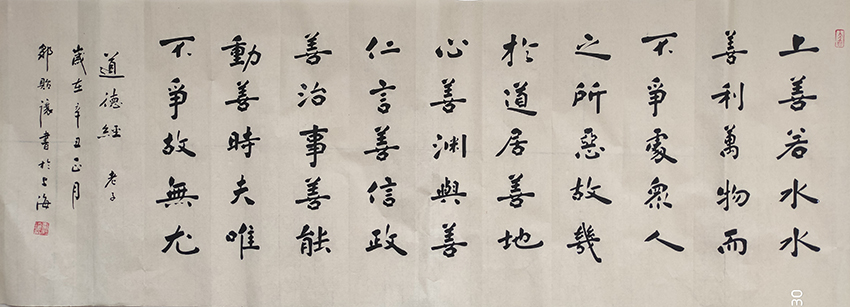 上善若水水
善利萬物而
不爭處衆人
之所惡故幾
於道居善地
心善渊與善
仁言善信政
善治事善能
動善時夫唯
不爭故無尤
道德經 老子
歲在辛丑正月
鄒貽書於上海